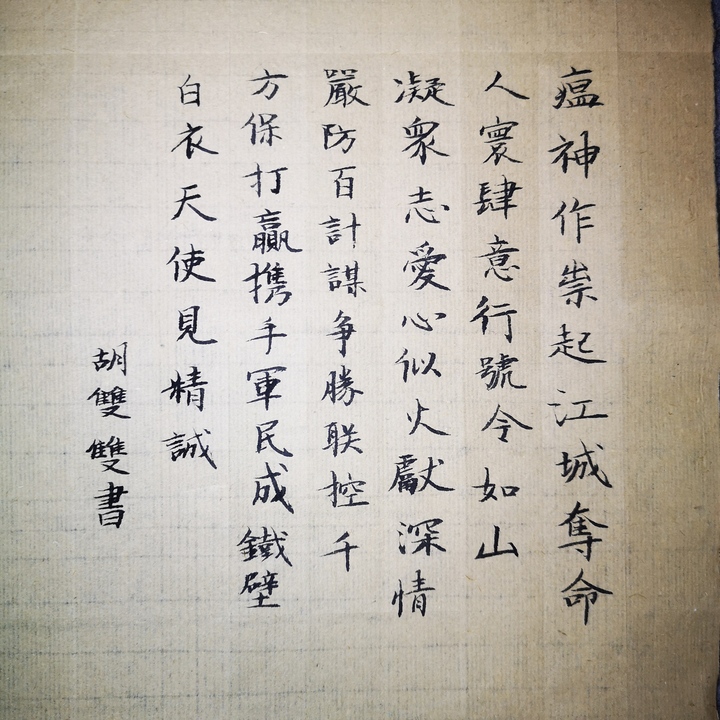 瘟神作祟起江城奪命
人寰肆意行號令如山
凝衆志愛心似火獻深情
嚴防百計謀争勝联控千
方保打贏携手軍民成鐵壁
白衣天使見精誠
胡雙雙書